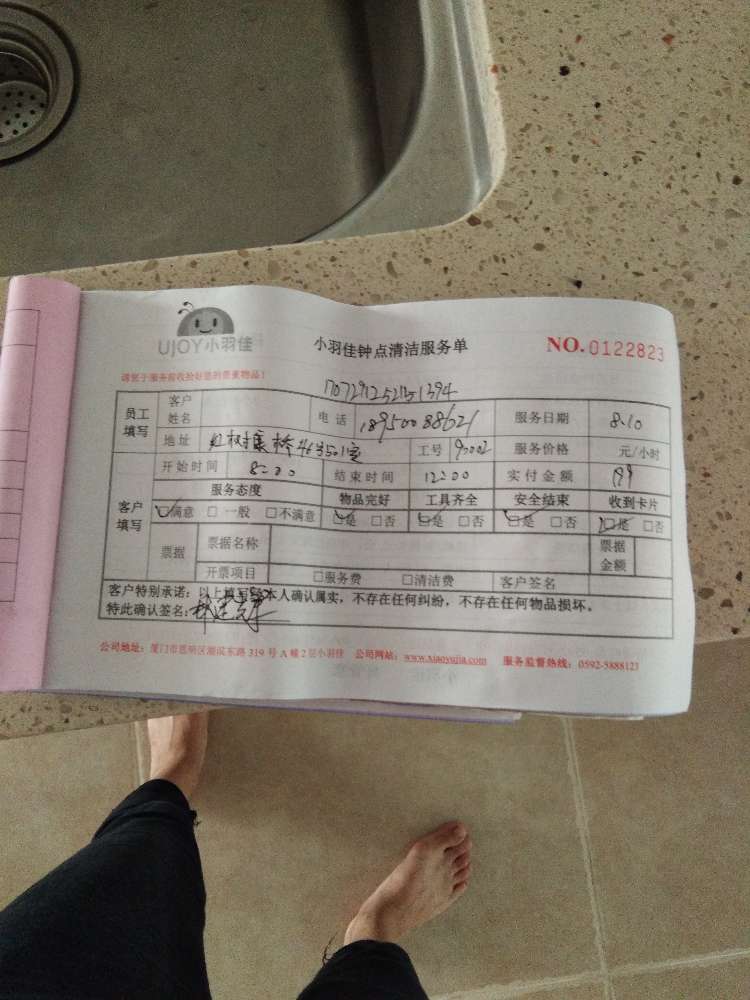 UJOY小羽佳
小羽佳钟点清洁服务单
NO.0122823
请您于服务前收拾好您的贵重物品！
员工填写 客户姓名 电话 18950088621 服务日期 8.10
地址 红树康桥46号501室 工号 服务价格 元/小时
客户填写 开始时间 8:00 结束时间 12:00 实付金额
服务态度 物品完好 工具齐全 安全结束 收到卡片
☑满意 □一般 □不满意 ☑是 □否 ☑是 □否 ☑是 □否 ☑是 □否
票据 票据名称 票据金额
开票项目 □服务费 □清洁费 客户签名
客户特别承诺：以上填写经本人确认属实，不存在任何纠纷，不存在任何物品损坏。
特此确认签名：
公司地址：厦门市思明区湖滨东路 319 号 A 幢 2 层小羽佳 公司网站：www.xiaoyujia.com 服务监督热线：0592-5888123